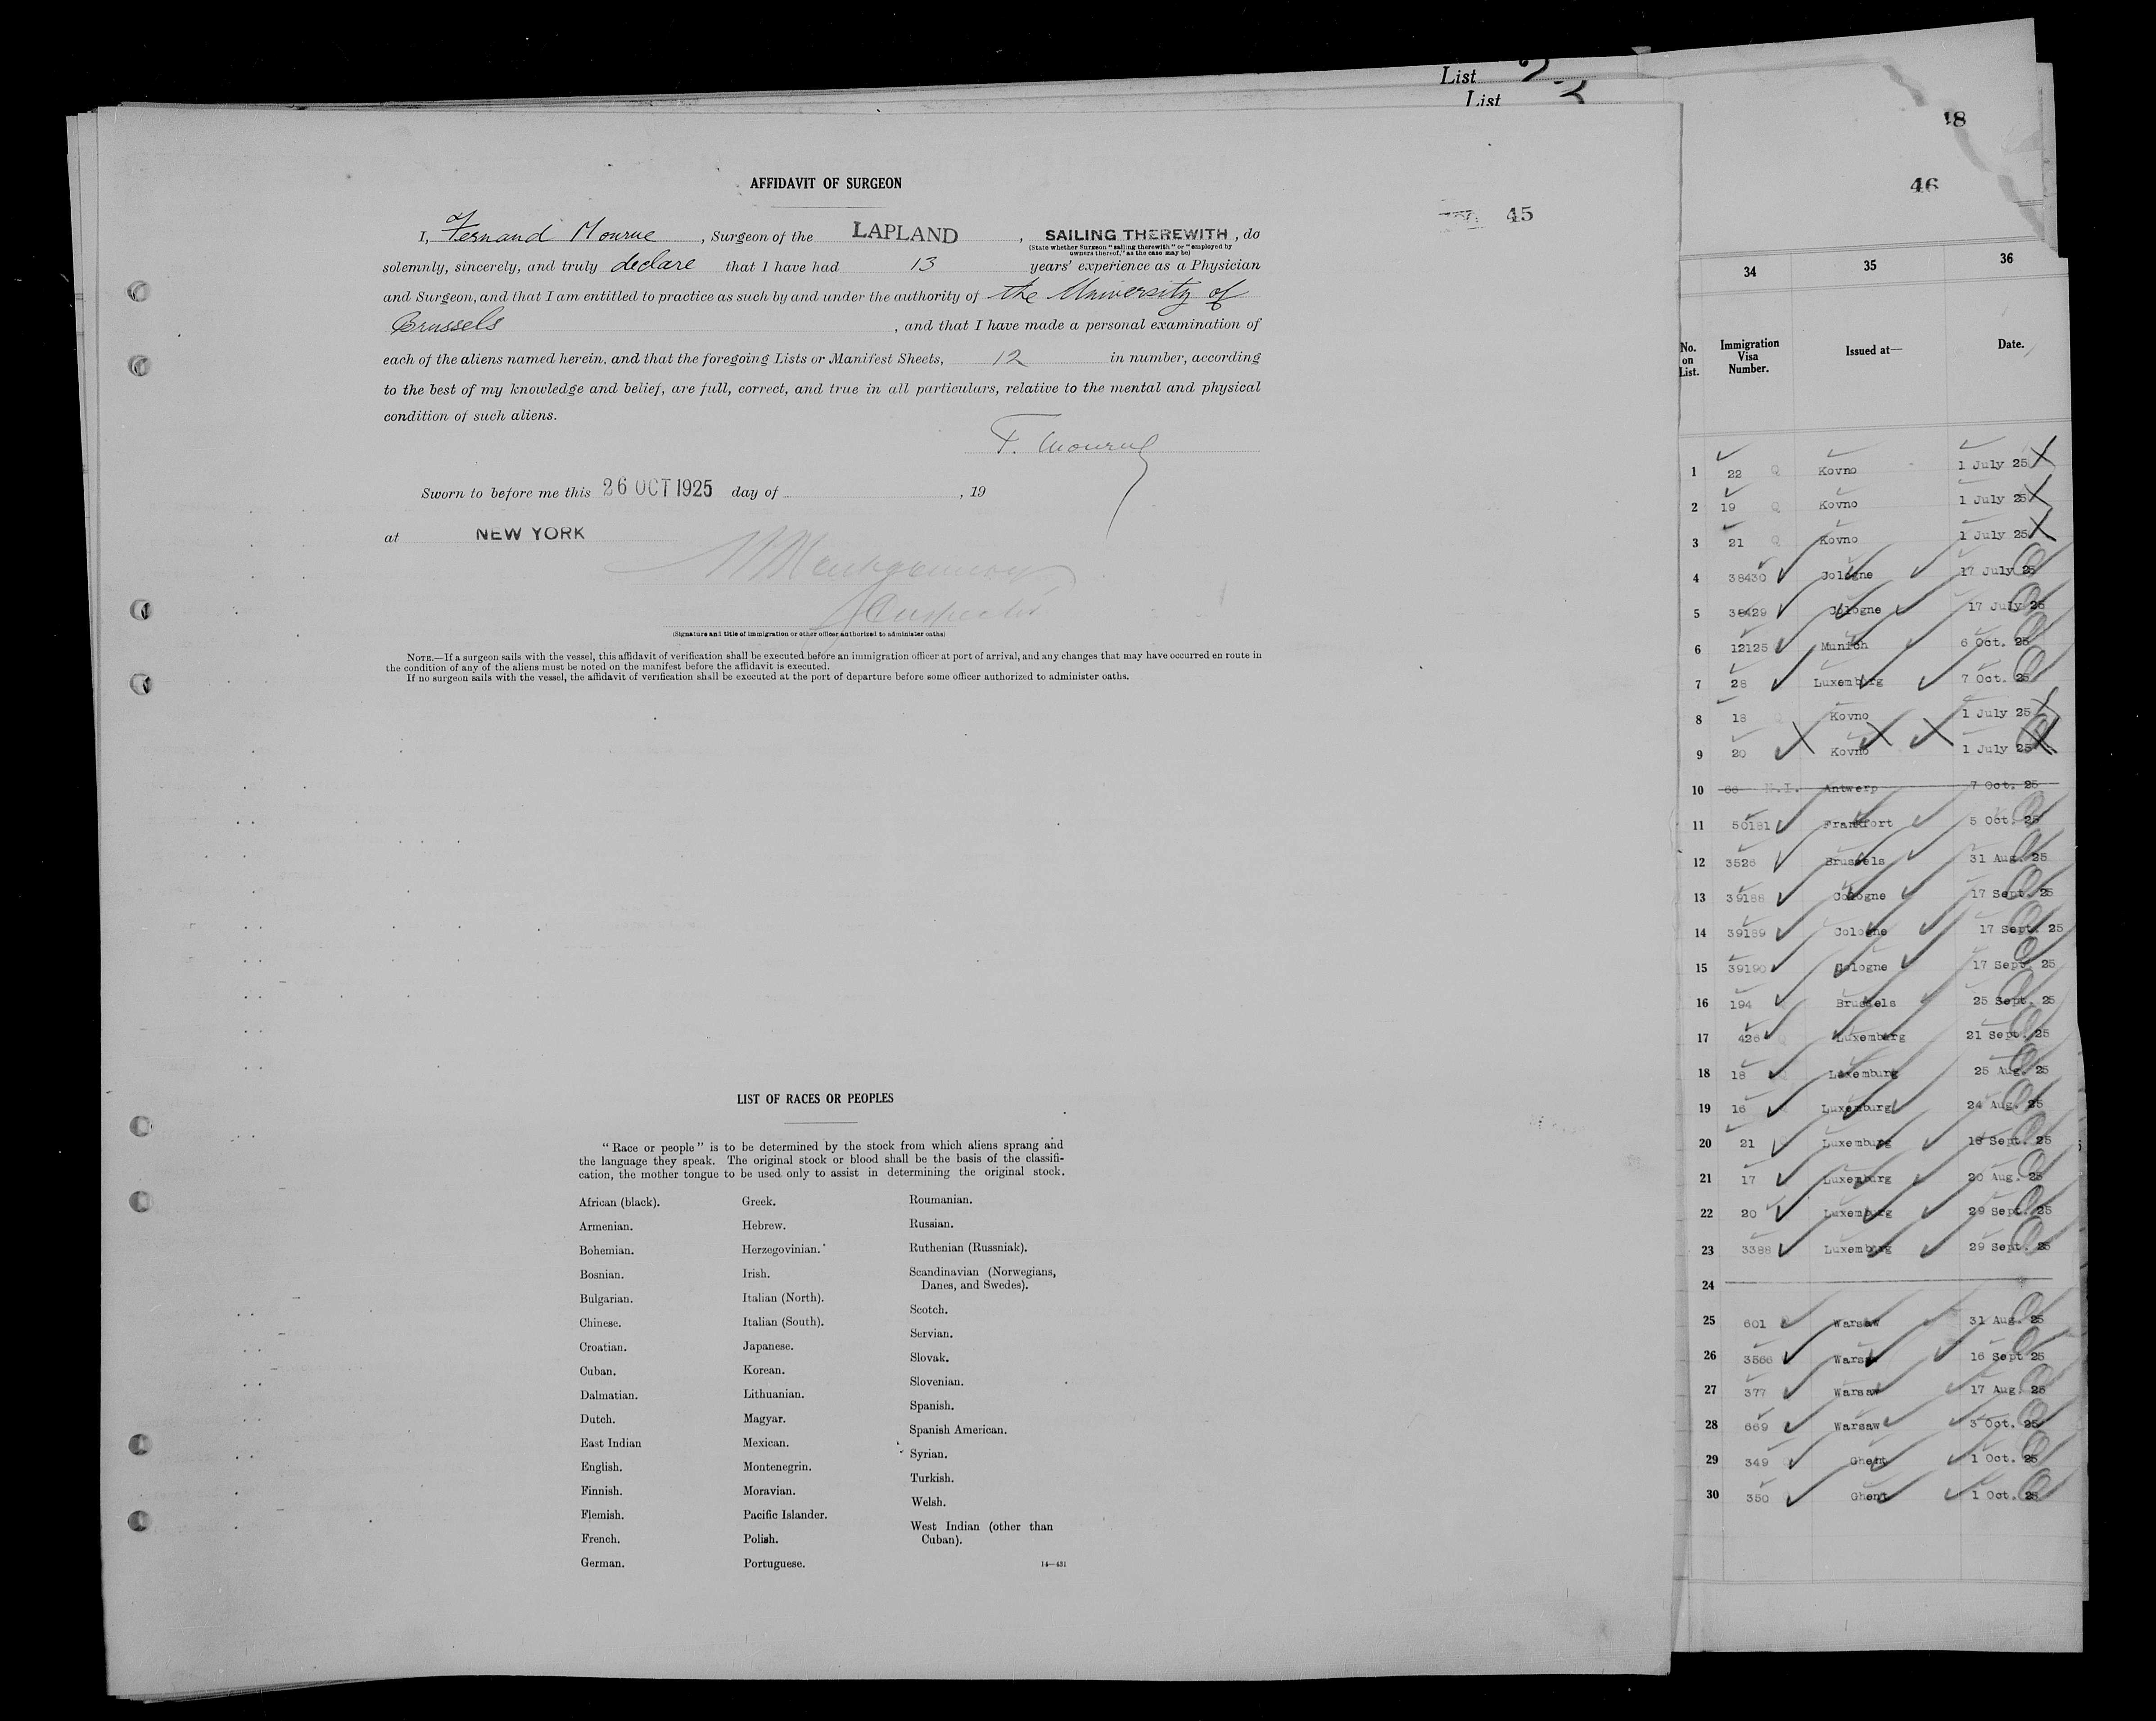 List
List
18
46
45
AFFIDAVIT OF SURGEON
I, Fernand Mourue, Surgeon of the LAPLAND, SAILING THEREWITH, do
(State whether Surgeon "sailing therewith" or "employed by
owners thereof," as the case may be)
solemnly, sincerely, and truly declare that I have had 13 years' experience as a Physician
and Surgeon, and that I am entitled to practice as such by and under the authority of the University of
Brussels, and that I have made a personal examination of
each of the aliens named herein, and that the foregoing Lists or Manifest Sheets, 12 in number, according
to the best of my knowledge and belief, are full, correct, and true in all particulars, relative to the mental and physical
condition of such aliens.
F. Mourue
Sworn to before me this 26 OCT 1925 day of , 19
at NEW YORK
Inspector
(Signature and title of immigration or other officer authorized to administer oaths)
NOTE.—If a surgeon sails with the vessel, this affidavit of verification shall be executed before an immigration officer at port of arrival, and any changes that may have occurred en route in
the condition of any of the aliens must be noted on the manifest before the affidavit is executed.
If no surgeon sails with the vessel, the affidavit of verification shall be executed at the port of departure before some officer authorized to administer oaths.
LIST OF RACES OR PEOPLES
"Race or people" is to be determined by the stock from which aliens sprang and
the language they speak. The original stock or blood shall be the basis of the classifi-
cation, the mother tongue to be used only to assist in determining the original stock.
African (black).
Armenian.
Bohemian.
Bosnian.
Bulgarian.
Chinese.
Croatian.
Cuban.
Dalmatian.
Dutch.
East Indian
English.
Finnish.
Flemish.
French.
German.
Greek.
Hebrew.
Herzegovinian.
Irish.
Italian (North).
Italian (South).
Japanese.
Korean.
Lithuanian.
Magyar.
Mexican.
Montenegrin.
Moravian.
Pacific Islander.
Polish.
Portuguese.
Roumanian.
Russian.
Ruthenian (Russniak).
Scandinavian (Norwegians,
Danes, and Swedes).
Scotch.
Servian.
Slovak.
Slovenian.
Spanish.
Spanish American.
Syrian.
Turkish.
Welsh.
West Indian (other than
Cuban).
14—431
34 35 36
No. on List. Immigration Visa Number. Issued at— Date.
1 22 Q Kovno 1 July 25
2 19 Q Kovno 1 July 25
3 21 Q Kovno 1 July 25
4 38430 Cologne 17 July 25
5 38429 Cologne 17 July 25
6 12125 Munich 6 Oct. 25
7 28 Luxemburg 7 Oct. 25
8 18 Kovno 1 July 25
9 20 Kovno 1 July 25
10 66 N.I. Antwerp 7 Oct. 25
11 50181 Frankfort 5 Oct. 25
12 3526 Brussels 31 Aug. 25
13 39188 Cologne 17 Sept. 25
14 39189 Cologne 17 Sept. 25
15 39190 Cologne 17 Sept. 25
16 194 Brussels 25 Sept. 25
17 426 Luxemburg 21 Sept. 25
18 18 Luxemburg 25 Aug. 25
19 16 Luxemburg 24 Aug. 25
20 21 Luxemburg 18 Sept. 25
21 17 Luxemburg 20 Aug. 25
22 20 Luxemburg 29 Sept. 25
23 3388 Luxemburg 29 Sept. 25
24
25 601 Warsaw 31 Aug. 25
26 3566 Warsaw 16 Sept 25
27 377 Warsaw 17 Aug. 25
28 669 Warsaw 3 Oct. 25
29 349 Ghent 1 Oct. 25
30 350 Ghent 1 Oct. 25